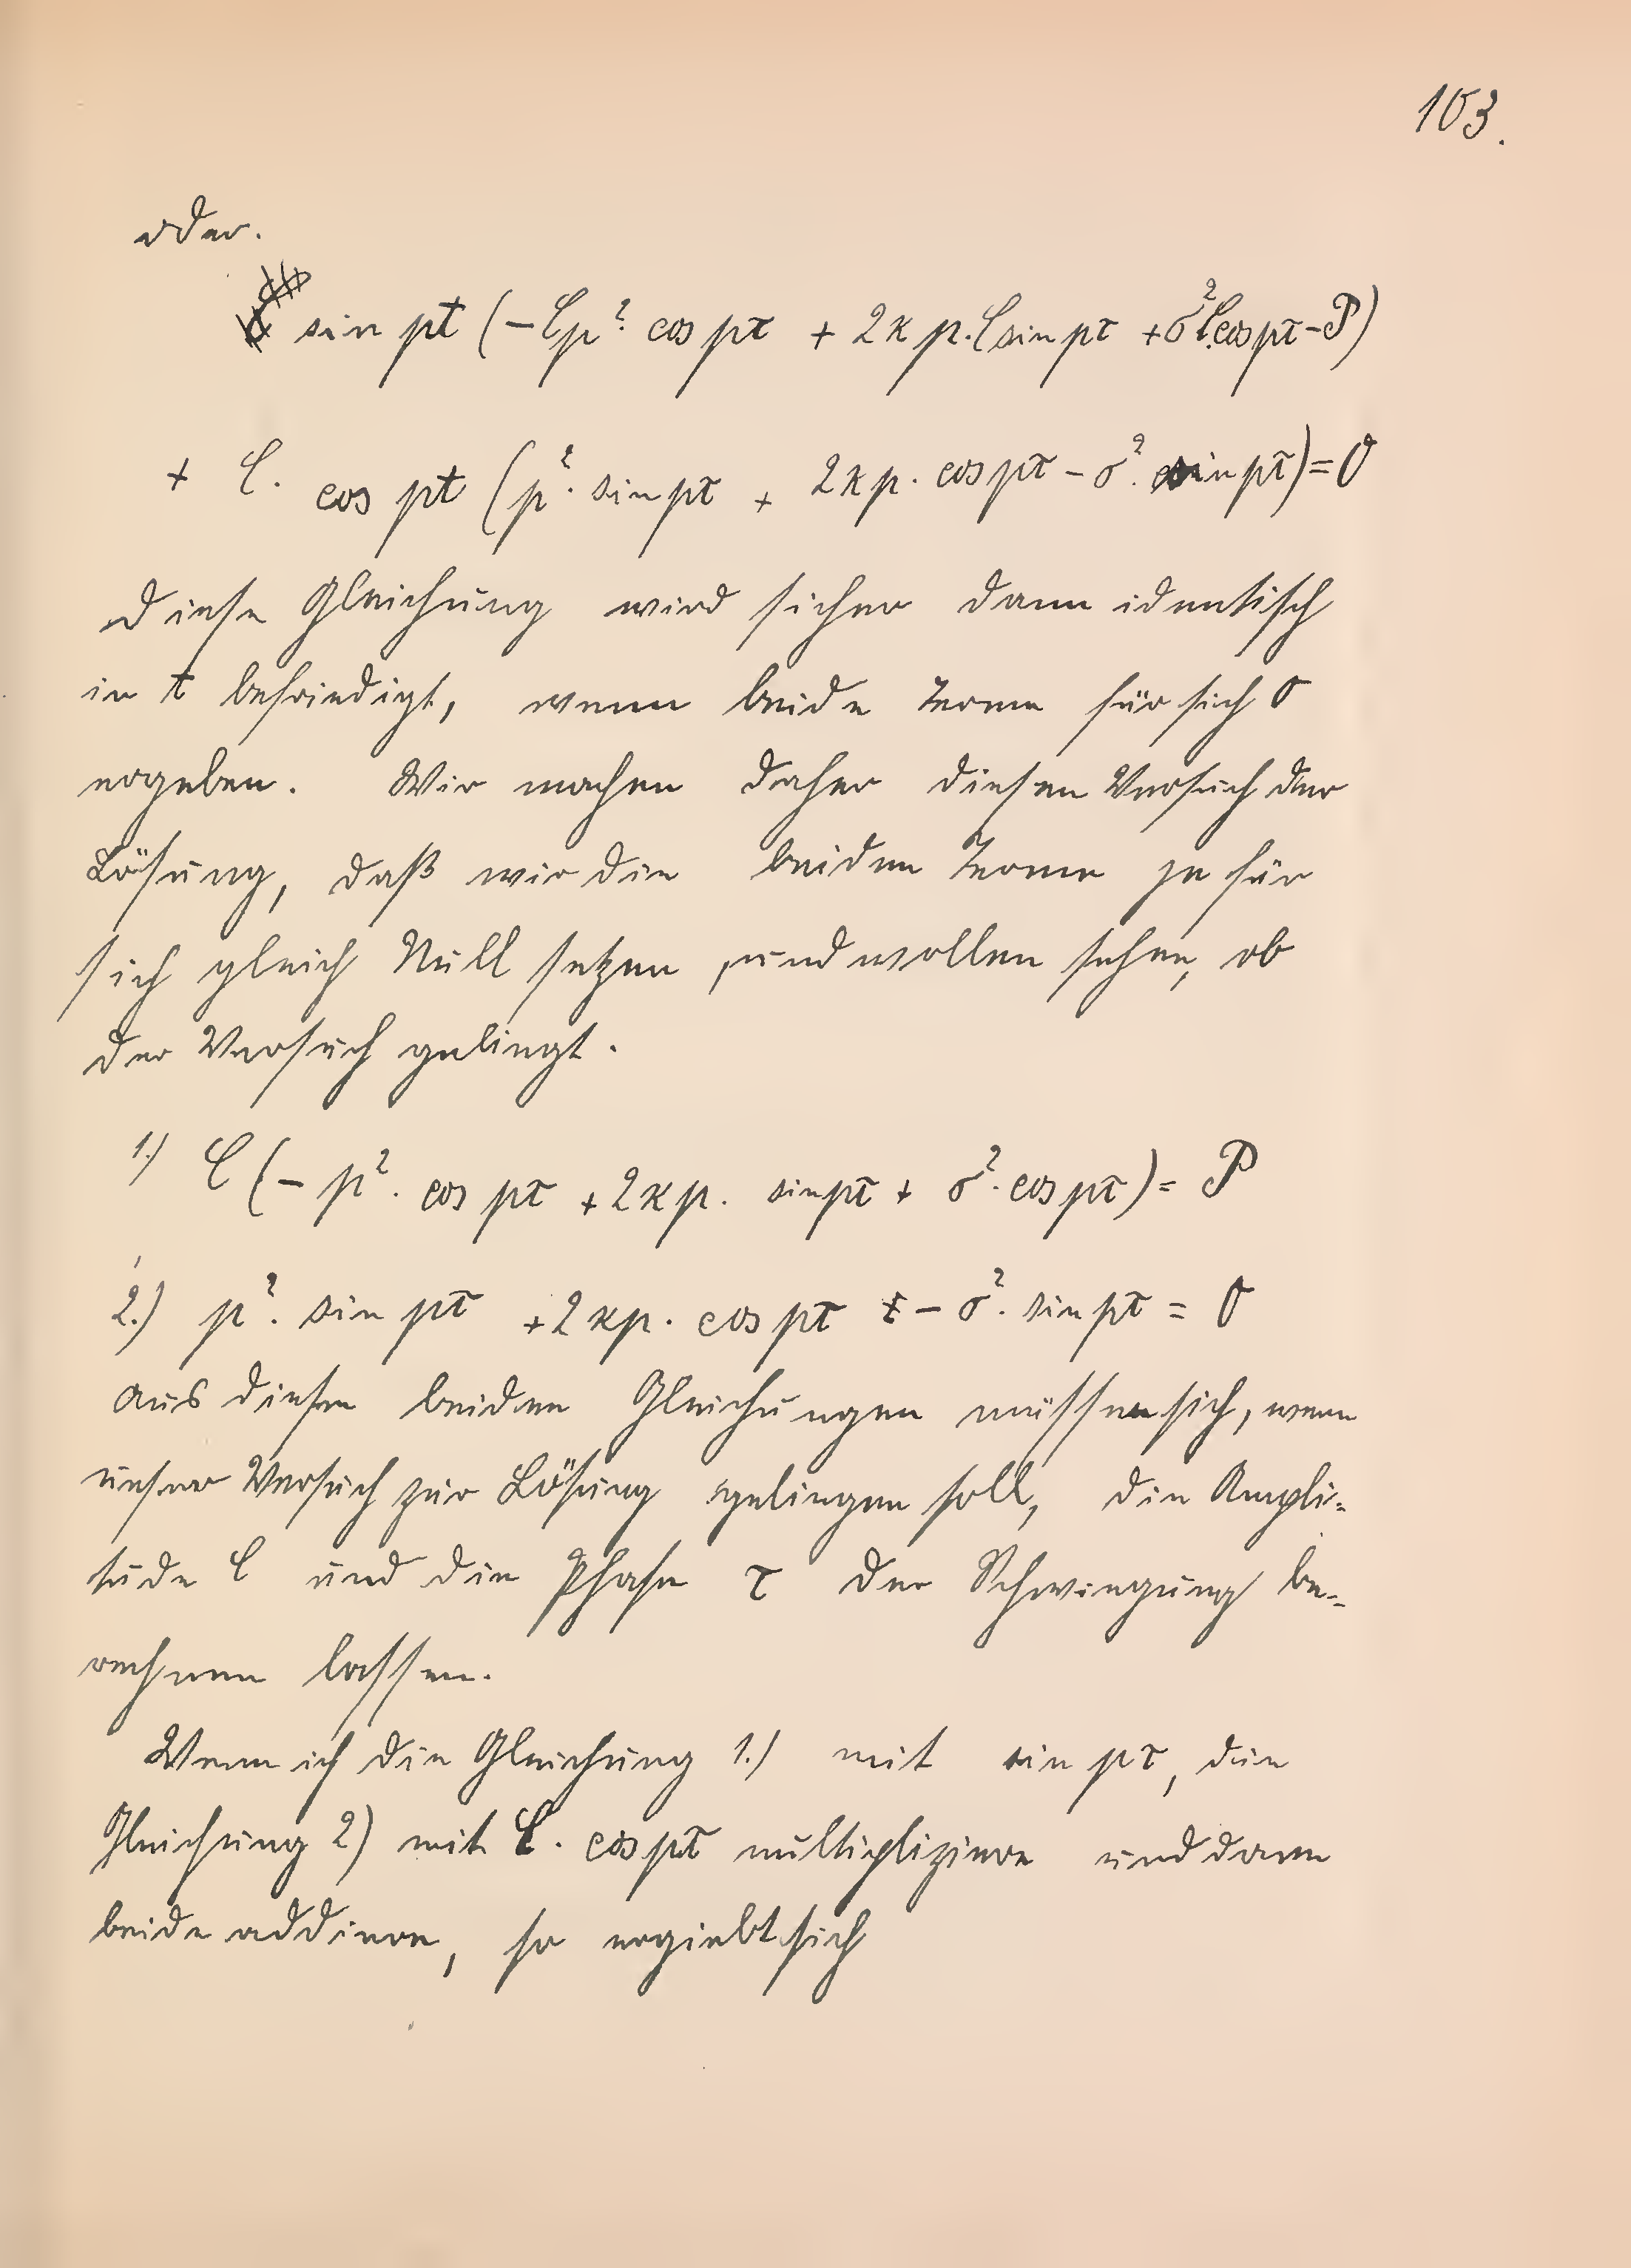 103.
oder.
sin pt (-Cp². cos pτ + 2κp.C sin pτ + σ²C.cos pτ - P)
+ C. cos pt (p². sin pτ + 2κp. cos pτ - σ². sin pτ) = 0
Diese Gleichung wird sicher dann identisch
in t befriedigt, wenn beide Terme für sich 0
ergeben. Wir machen daher diesen Versuch der
Lösung, daß wir die beiden Terme je für
sich gleich Null setzen, und wollen sehen, ob
der Versuch gelingt.
1.) C (- p². cos pτ + 2κp. sin pτ + σ². cos pτ) = P
2.) p². sin pτ + 2κp. cos pτ - σ². sin pτ = 0
Aus diesen beiden Gleichungen müssen sich, wenn
unser Versuch zur Lösung gelingen soll, die Ampli-
tude C und die Phase τ der Schwingung be-
rechnen lassen.
Wenn ich die Gleichung 1.) mit sin pτ, die
Gleichung 2) mit C. cos pτ multipliziere und dann
beide addiere, so ergiebt sich